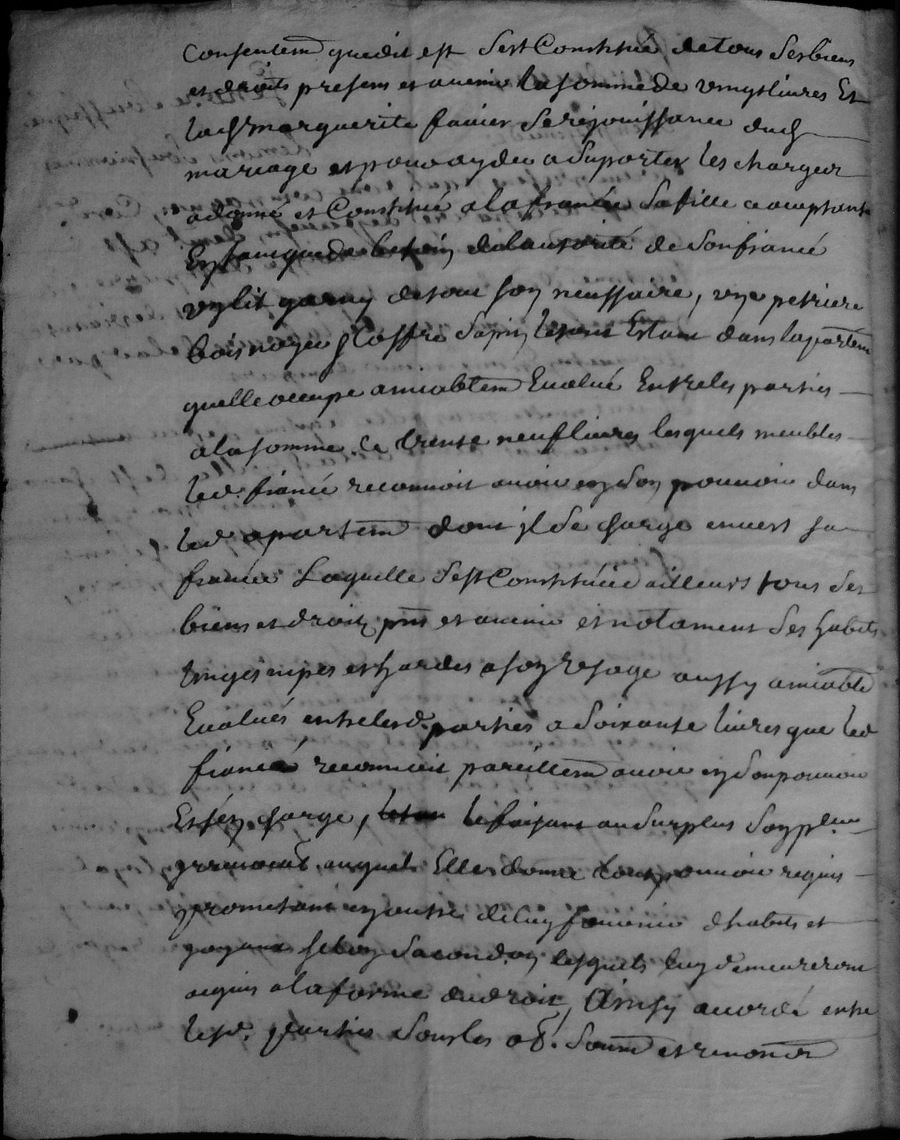 Consentem quedit est sest Constitué de tous ses biens
et droits presens et avenir la somme de vingt livres Et
lad marguerite favier se rejouissance dud
mariage et pour ayder a suporter les charges
a donné et Constitué a la fiancée sa fille acceptante
En tant que de besoin de l autorité de son fiancé
un lit garny de tout son necessaire, une petriere
bois noyer coffre sapin le tout Estant dans lapartem
quelle occupe amiablem Evalué Entre les parties
a la somme de trente neuf livres lesquels meubles
led fiancé reconnoit avoir en son pouvoir dans
led apartem dont il se charge envers sa
fiancée Laquelle sest Constituée dailleurs tous ses
biens et droits pnts et avenir et notament ses habits
linges nipes et hardes a son usage aussy amiable
Evalués entre lesd. parties a soixante livres que led
fiancé reconnoit pareillem avoir en son pouvoir
Et sen charge, le faisant au surplus son
procureur auquel Elle donne tout pouvoir requis
promettant en outre de luy fournir dhabits et
joyaux selon sa condon lesquels luy demeureront
acquis a la forme du droit, Ainsy accordé entre
lesd. parties sous les ob. soum et renonon